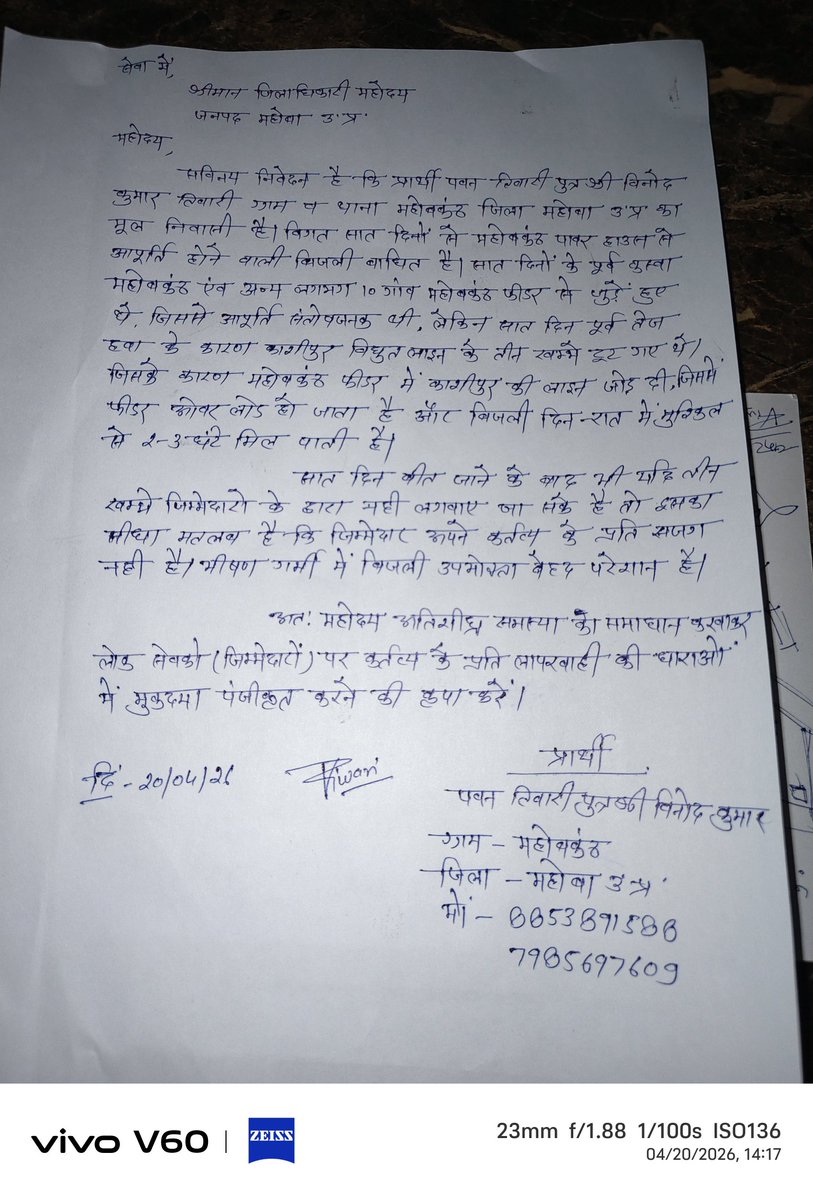 सेवा में,
श्रीमान जिलाधिकारी महोदय
जनपद महोबा उ॰प्र॰
महोदय,
सविनय निवेदन है कि प्रार्थी पवन तिवारी पुत्र श्री विनोद
कुमार तिवारी ग्राम व थाना महोबकंठ जिला महोबा उ॰प्र॰ का
मूल निवासी है। विगत सात दिनों से महोबकंठ पावर हाउस से
आपूर्ति होने वाली बिजली बाधित है। सात दिनों के पूर्व कस्बा
महोबकंठ एंव अन्य लगभग 10 गांव महोबकंठ फीडर से जुड़े हुए
थे, जिसमे आपूर्ति संतोषजनक थी, लेकिन सात दिन पूर्व तेज
हवा के कारण काशीपुर विद्युत लाइन के तीन खम्भे टूट गए थे।
जिसके कारण महोबकंठ फीडर में काशीपुर की लाइन जोड़ दी, जिसमें
फीडर ओवर लोड हो जाता है और बिजली दिन-रात में मुश्किल
से 2-3 घंटे मिल पाती है।
सात दिन बीत जाने के बाद भी यदि तीन
खम्भे जिम्मेदारो के द्वारा नही लगवाए जा सके है तो इसका
सीधा मतलब है कि जिम्मेदार अपने कर्तव्य के प्रति सजग
नही है। भीषण गर्मी में बिजली उपभोक्ता बेहद परेशान है।
अतः महोदय अतिशीघ्र समस्या का समाधान करवाकर
लोक सेवको (जिम्मेदारों) पर कर्तव्य के प्रति लापरवाही की धाराओं
में मुकदमा पंजीकृत करने की कृपा करें।
प्रार्थी
दि - 20/04/26 Tiwari
पवन तिवारी पुत्र श्री विनोद कुमार
ग्राम - महोबकंठ
जिला - महोबा उ॰प्र॰
मो॰ -
7985697609
vivo V60 | ZEISS
23mm f/1.88 1/100s ISO136
04/20/2026, 14:17